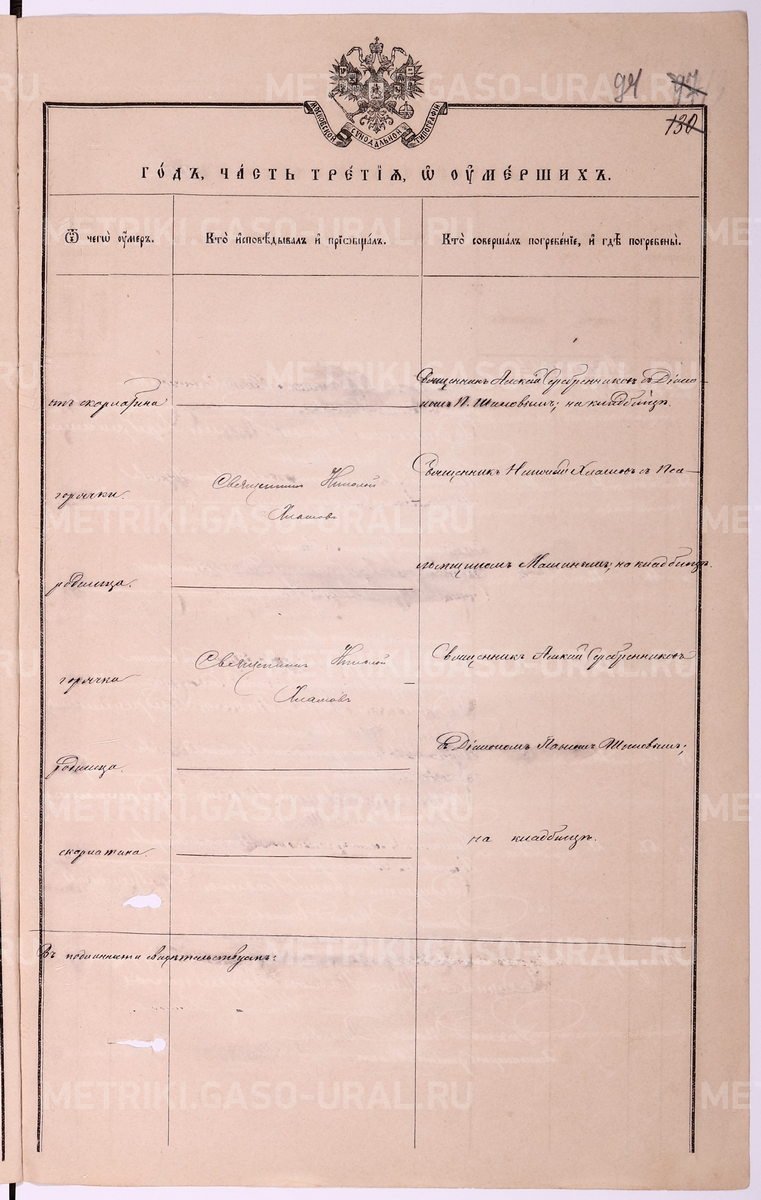 METRIKI.GASO-URAL.RU
94 97
130
МОСКОВСКОЙ СѴНОДАЛЬНОЙ ТИПОГРАФІИ
ГО́ДЪ, ЧА́СТЬ ТРЕ́ТІѦ, Ѡ҆ ОУ҆МЕ́РШИХЪ.
Ѿ чегѡ̀ оу҆́меръ.
Кто̀ и҆сповѣ́дывалъ и҆ прїѡбща́лъ.
Кто̀ соверша́лъ погребе́нїе, и҆ гдѣ̀ погребены̀.
отъ скорлатина
Священникъ Алексій Серебренниковъ съ Діако-
номъ П. Шишовымъ; на кладбищѣ.
горячки.
Священникъ Николай
Хламовъ
Священникъ Николай Хламовъ съ Пса-
родимца.
ломщикомъ Машинымъ; на кладбищѣ.
горячка
Священникъ Николай
Хламовъ
Священникъ Алексій Серебренниковъ
родимца.
съ Діакономъ Шишовымъ;
скорлатина.
на кладбищѣ.
Въ подлинности свидѣтельствуемъ: